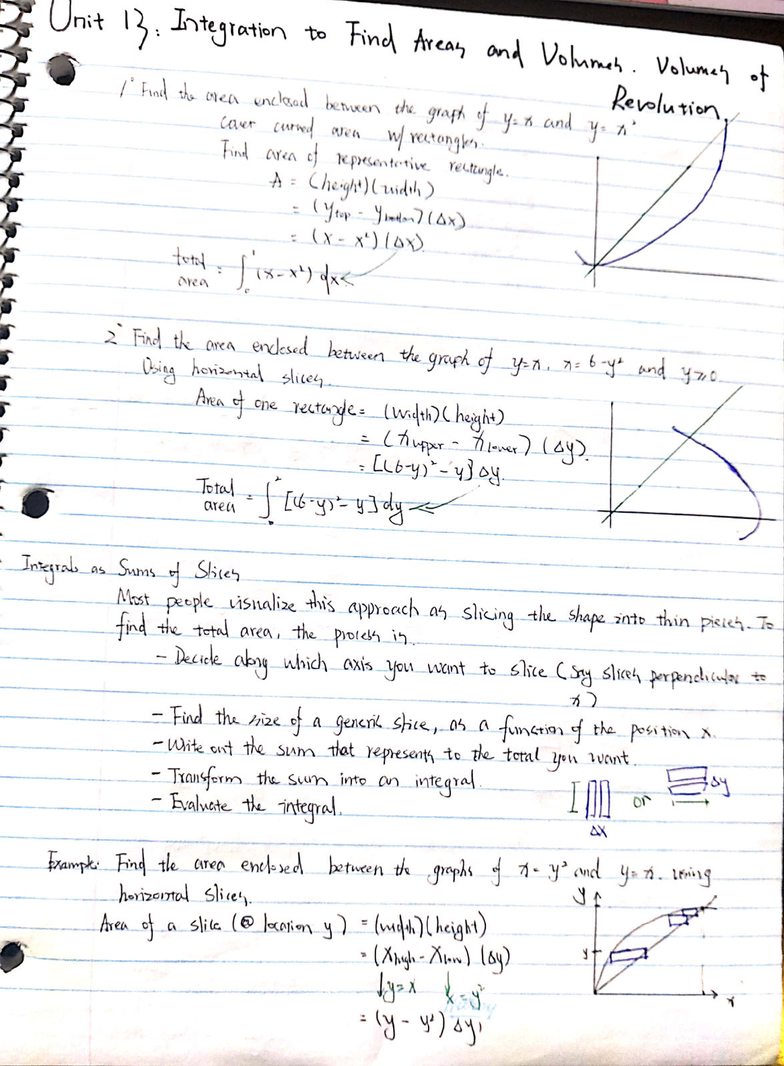 Unit 13: Integration to Find Areas and Volumes. Volumes of
Revolution
1° Find the area enclosed between the graph of y=x and y=x²
Cover curved area w/ rectangles.
Find area of representative rectangle.
A = (height)(width)
= (y top - y bottom)(Δx)
= (x - x²)(Δx)
total area = ∫₀¹ (x-x²) dx
2° Find the area enclosed between the graph of y=x, x=6-y² and y≥0
Using horizontal slices.
Area of one rectangle = (width)(height)
= (x upper - x lower)(Δy).
= [(6-y)²-y] Δy.
Total area = ∫₀² [(6-y)²-y] dy
Integrals as Sums of Slices
Most people visualize this approach as slicing the shape into thin pieces. To
find the total area, the process is.
- Decide along which axis you want to slice (say slices perpendicular to
x)
- Find the size of a generic slice, as a function of the position x.
- Write out the sum that represents to the total you want.
- Transform the sum into an integral.
- Evaluate the integral.
Δx or Δy
Example: Find the area enclosed between the graphs of x=y² and y=x. using
horizontal slices.
Area of a slice (@ location y) = (width)(height)
= (x high - x low)(Δy)
↓y=x ↓x=y²
= (y - y²) Δy
y
y
x